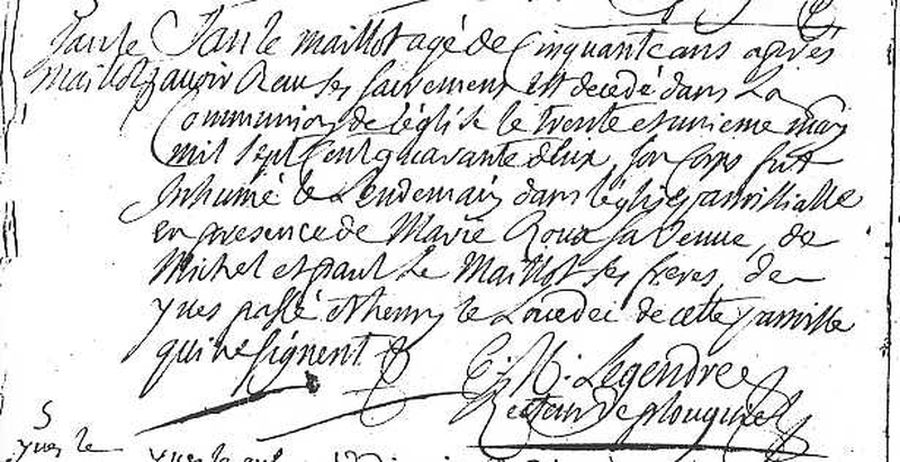 Jan le Jan le maillot agé de Cinquante ans aprés
Maillot avoir Receu ses sacrements est decedé dans La
Communion de léglise le trente et unieme may
mil sept Cent quarante deux, son Corps fut
Inhumé le Lendemain dans léglise parroissialle
en presence de Marie Roux sa veuve, de
Michel et paul Le Maillot ses freres, de
yves passé et henry le de cette parroisse
qui ne signent
Legendre
Recteur de plouguiel
5
yves le
yves le